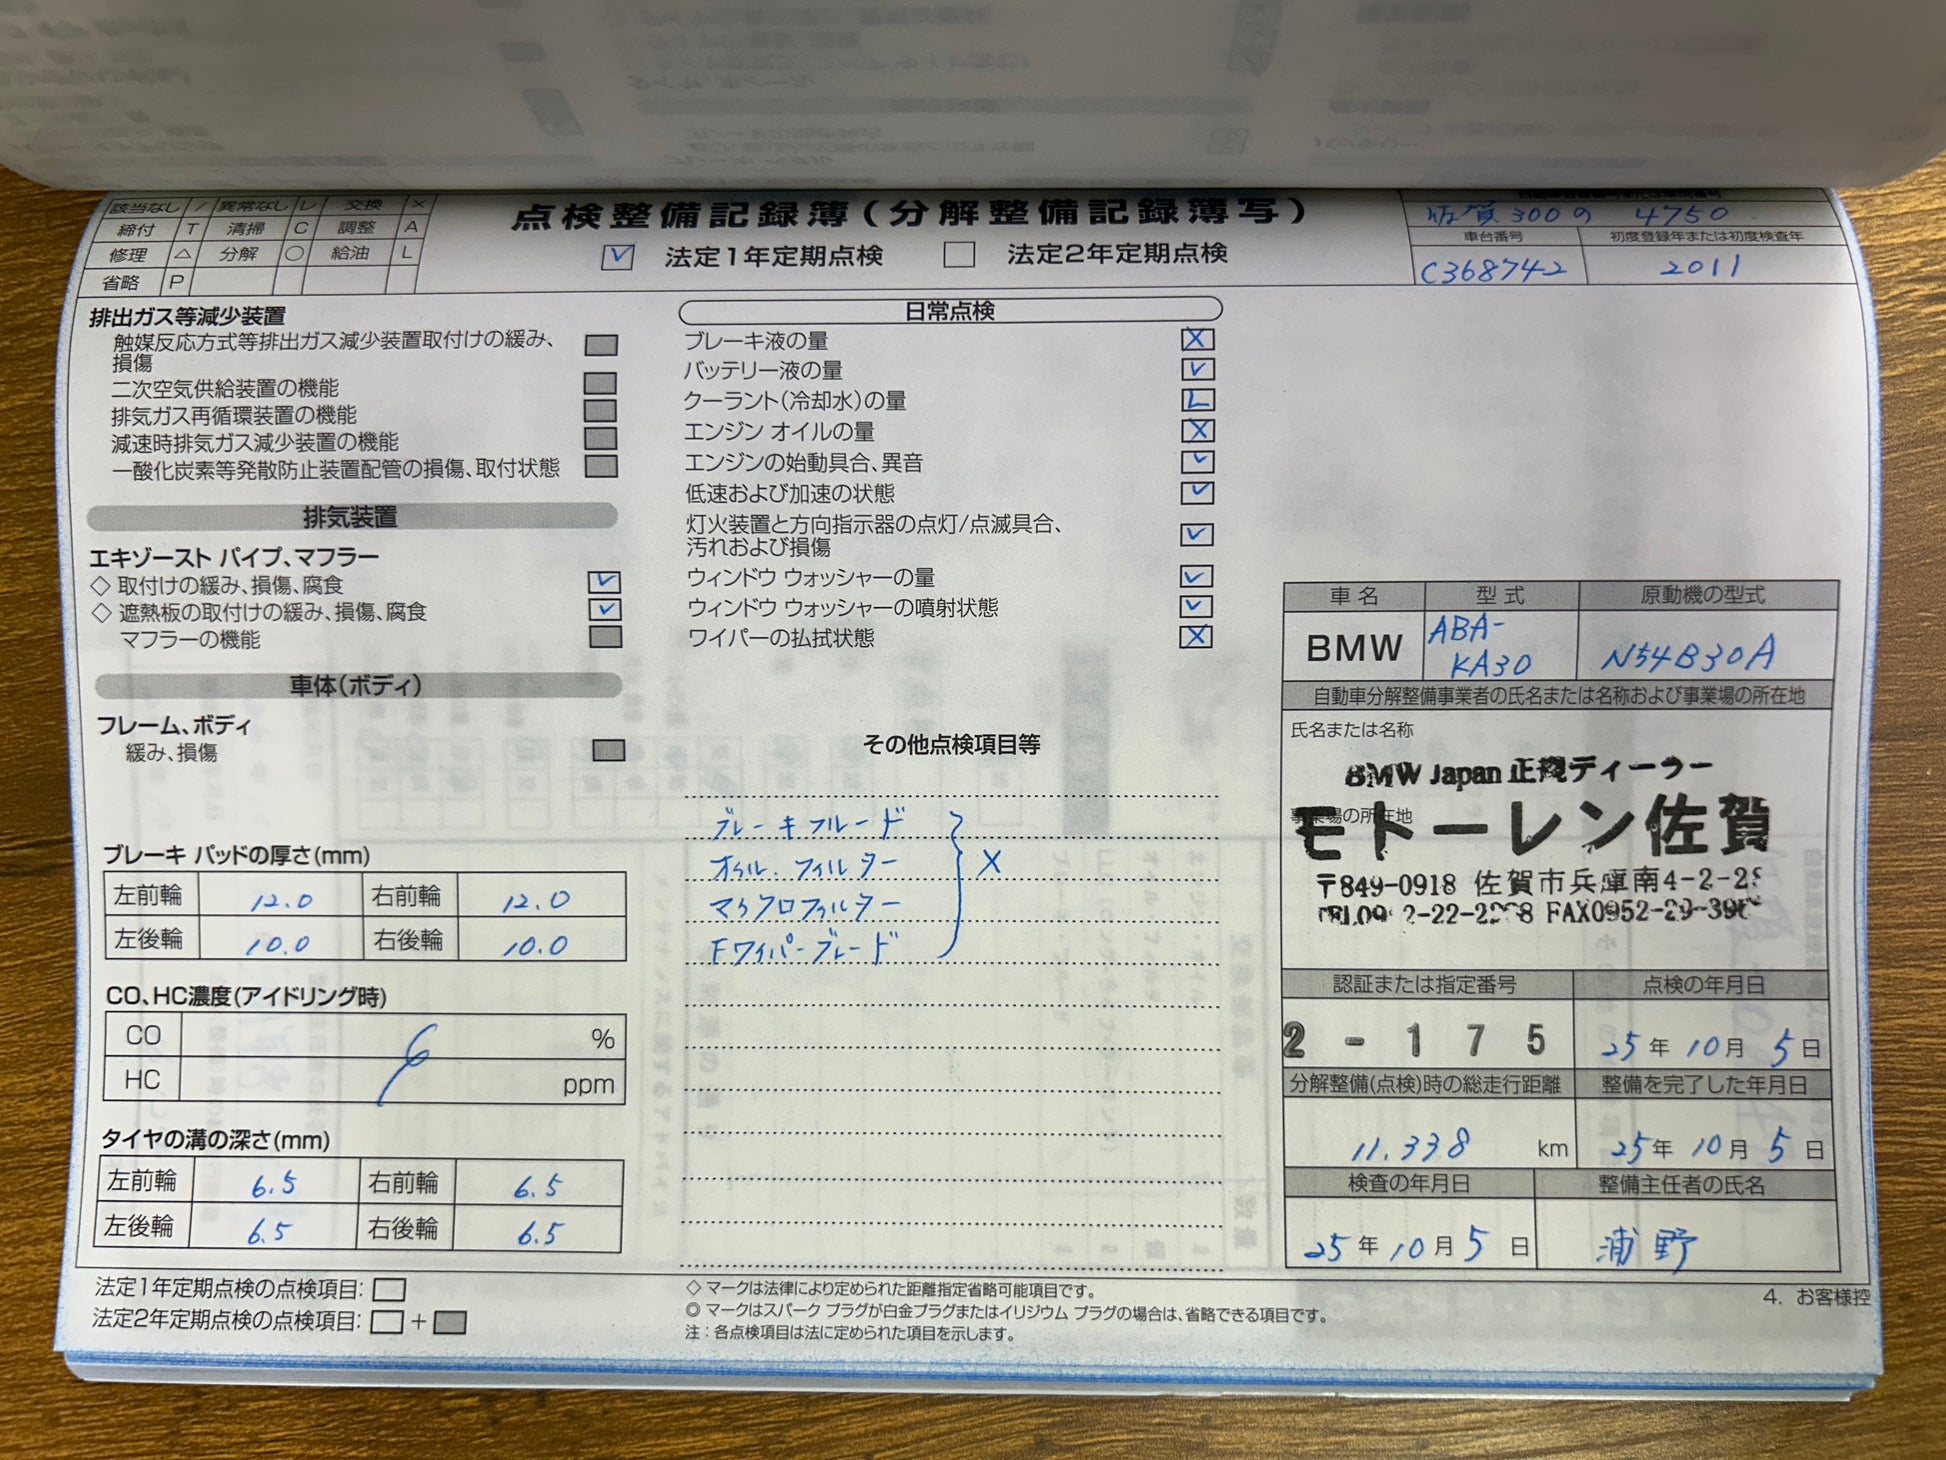 該当なし / 異常なし レ 交換 ×
締付 T 清掃 C 調整 A
修理 △ 分解 ○ 給油 L
省略 P
点検整備記録簿(分解整備記録簿写)
☑ 法定1年定期点検 □ 法定2年定期点検
自動車登録番号または車両番号
佐賀300の 4750
車台番号 初度登録年または初度検査年
C368742 2011
排出ガス等減少装置
触媒反応方式等排出ガス減少装置取付けの緩み、
損傷
二次空気供給装置の機能
排気ガス再循環装置の機能
減速時排気ガス減少装置の機能
一酸化炭素等発散防止装置配管の損傷、取付状態
排気装置
エキゾースト パイプ、マフラー
◇ 取付けの緩み、損傷、腐食 ☑
◇ 遮熱板の取付けの緩み、損傷、腐食 ☑
マフラーの機能
車体(ボディ)
フレーム、ボディ
緩み、損傷
ブレーキ パッドの厚さ(mm)
左前輪 12.0 右前輪 12.0
左後輪 10.0 右後輪 10.0
CO、HC濃度(アイドリング時)
CO %
HC ppm
タイヤの溝の深さ(mm)
左前輪 6.5 右前輪 6.5
左後輪 6.5 右後輪 6.5
法定1年定期点検の点検項目: □
法定2年定期点検の点検項目: □ + ■
日常点検
ブレーキ液の量 X
バッテリー液の量 ☑
クーラント(冷却水)の量 L
エンジン オイルの量 X
エンジンの始動具合、異音 ☑
低速および加速の状態 ☑
灯火装置と方向指示器の点灯/点滅具合、
汚れおよび損傷 ☑
ウィンドウ ウォッシャーの量 ☑
ウィンドウ ウォッシャーの噴射状態 ☑
ワイパーの払拭状態 X
その他点検項目等
ブレーキフルード
オイル.フィルター X
マイクロフィルター
Fワイパーブレード
◇ マークは法律により定められた距離指定省略可能項目です。
◎ マークはスパーク プラグが白金プラグまたはイリジウム プラグの場合は、省略できる項目です。
注:各点検項目は法に定められた項目を示します。
車名 型式 原動機の型式
BMW ABA-
KA30 N54B30A
自動車分解整備事業者の氏名または名称および事業場の所在地
氏名または名称
BMW Japan 正規ディーラー
事業場の所在地
モトーレン佐賀
〒849-0918 佐賀市兵庫南4-2-2
FAX0952-29-
認証または指定番号 点検の年月日
2-175 25年10月5日
分解整備(点検)時の総走行距離 整備を完了した年月日
11.338 km 25年10月5日
検査の年月日 整備主任者の氏名
25年10月5日 浦野
4. お客様控